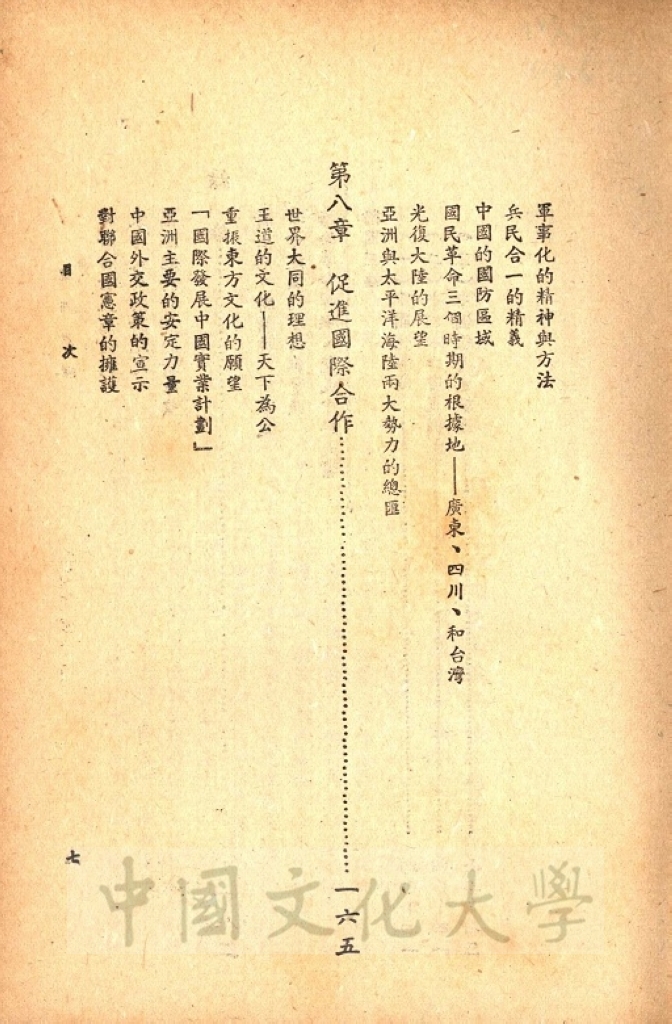 軍事化的精神與方法
兵民合一的精義
中國的國防區域
國民革命三個時期的根據地——廣東、四川、和台灣
光復大陸的展望
亞洲與太平洋海陸兩大勢力的總匯
第八章 促進國際合作……………………一六五
世界大同的理想
王道的文化——天下為公
重振東方文化的願望
「國際發展中國實業計劃」
亞洲主要的安定力量
中國外交政策的宣示
對聯合國憲章的擁護
目次 七
中國文化大學